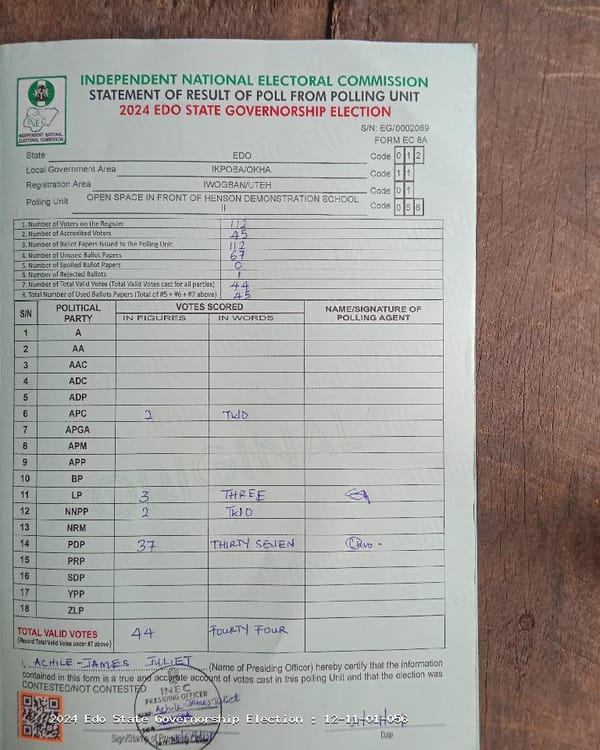 INDEPENDENT NATIONAL ELECTORAL COMMISSION
STATEMENT OF RESULT OF POLL FROM POLLING UNIT
2024 EDO STATE GOVERNORSHIP ELECTION
INEC
INDEPENDENT NATIONAL
ELECTORAL COMMISSION
S/N: EG/0002069
FORM EC 8A
State EDO Code 0 1 2
Local Government Area IKPOBA/OKHA Code 1 1
Registration Area IWOGBAN/UTEH Code 0 1
Polling Unit OPEN SPACE IN FRONT OF HENSON DEMONSTRATION SCHOOL II Code 0 5 6
1. Number of Voters on the Register 112
2. Number of Accredited Voters 45
3. Number of Ballot Papers Issued to the Polling Unit 112
4. Number of Unused Ballot Papers 67
5. Number of Spoiled Ballot Papers 0
6. Number of Rejected Ballots 1
7. Number of Total Valid Votes (Total Valid Votes cast for all parties) 44
8. Total Number of Used Ballot Papers (Total of #5 + #6 + #7 above) 45
S/N POLITICAL PARTY VOTES SCORED NAME/SIGNATURE OF POLLING AGENT
IN FIGURES IN WORDS
1 A
2 AA
3 AAC
4 ADC
5 ADP
6 APC 2 TWO
7 APGA
8 APM
9 APP
10 BP
11 LP 3 THREE
12 NNPP 2 TWO
13 NRM
14 PDP 37 THIRTY SEVEN
15 PRP
16 SDP
17 YPP
18 ZLP
TOTAL VALID VOTES 44 FOURTY FOUR
(Record Total Valid Votes under #7 above)
ORIGINAL
I, ACHILE-JAMES JULIET (Name of Presiding Officer) hereby certify that the information
contained in this form is a true and accurate account of votes cast in this polling Unit and that the election was
CONTESTED/NOT CONTESTED
INEC
PRESIDING OFFICER
Achile James Juliet
2024 Edo State Governorship Election : 12-11-01-056
Sign/Stamp of Presiding Officer
Date